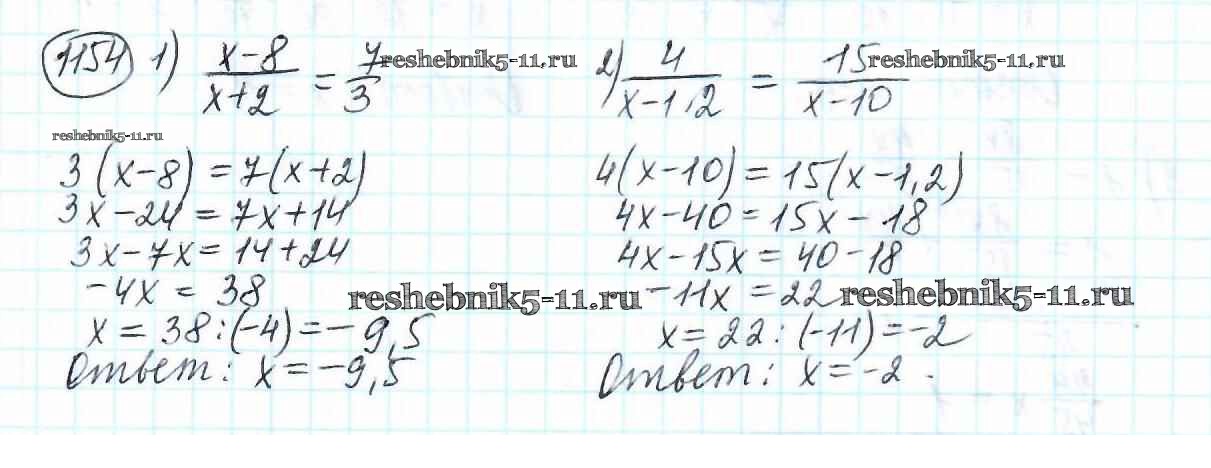 1154 1) (x-8)/(x+2) = 7/3
reshebnik5-11.ru
reshebnik5-11.ru
3(x-8) = 7(x+2)
3x-24 = 7x+14
3x-7x = 14+24
-4x = 38
reshebnik5-11.ru
x = 38:(-4) = -9,5
Ответ: x = -9,5
2) 4/(x-1,2) = 15/(x-10)
reshebnik5-11.ru
4(x-10) = 15(x-1,2)
4x-40 = 15x-18
4x-15x = 40-18
-11x = 22
reshebnik5-11.ru
x = 22:(-11) = -2
Ответ: x = -2.